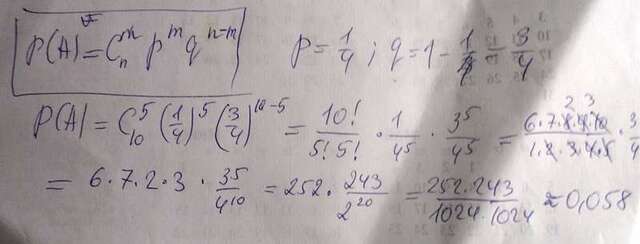 P(A) = Cₙᵐ pᵐ qⁿ⁻ᵐ p = 1/4 ; q = 1 - 1/4 = 3/4
P(A) = C₁₀⁵ (1/4)⁵ (3/4)¹⁰⁻⁵ = 10!/5!5! · 1/4⁵ · 3⁵/4⁵ = 6·7·8·9·10/1·2·3·4·5 · 3/4
= 6·7·2·3 · 3⁵/4¹⁰ = 252 · 243/2²⁰ = 252·243/1024·1024 ≈ 0,058